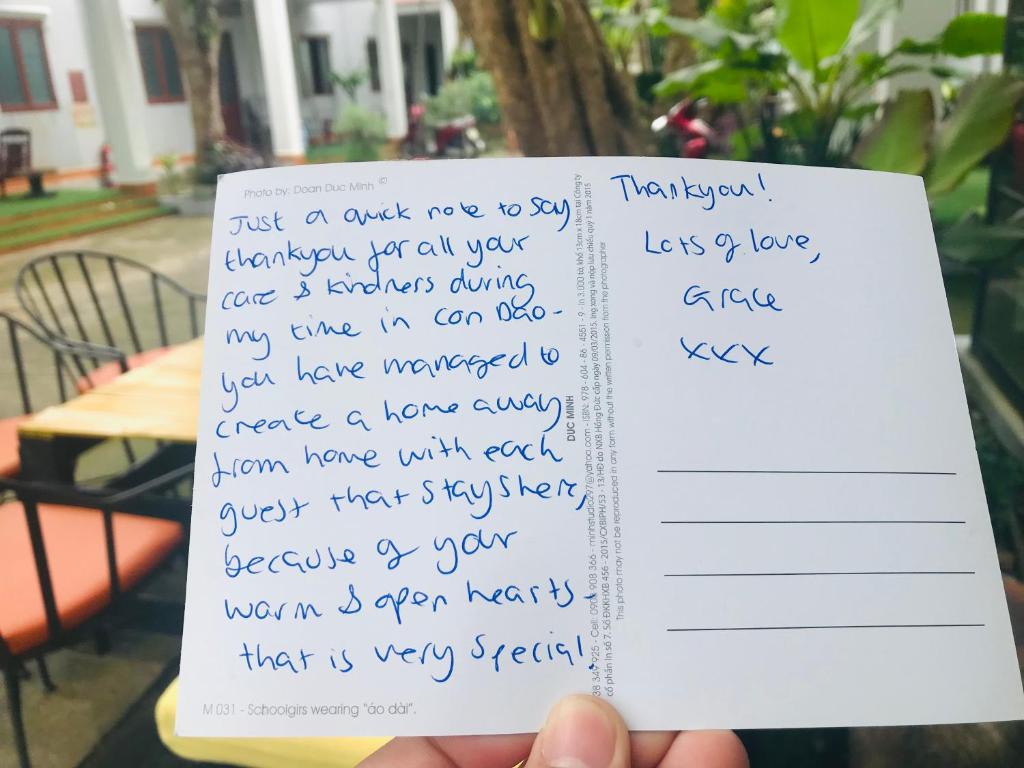 Photo by: Doan Duc Minh ©
Just a quick note to say
thankyou for all your
care & kindness during
my time in Con Dao -
you have managed to
create a home away
from home with each
guest that stays here,
because of your
warm & open hearts -
that is very special.
M 031 - Schoolgirs wearing "áo dài".
DUC MINH
38 349 925 - Cell: 0908 908 366 - minhstudio297@yahoo.com - ISBN: 978 - 604 - 86 - 4551 - 9 - In 3.000 tờ, khổ 13cm x 18cm tại Công ty
cổ phần In số 7. Số ĐKKHXB 456 - 2015/CXBIPH/53 - 13/HĐ do NXB Hồng Đức cấp ngày 09/03/2015. In xong và nộp lưu chiểu quý 1 năm 2015
This photo may not be reproduced in any form without the written permission from the photographer
Thankyou!
Lots of love,
Grace
xxx